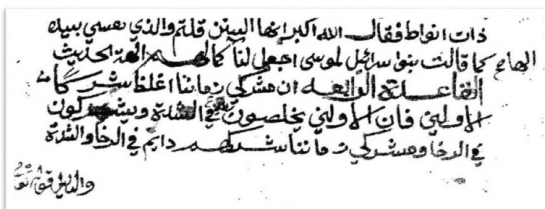 ذات انواط فقال الله اكبر انها السنن قلتم والذي نفسي بيده
كما قالت بنوا سرائيل لموسى اجعل لنا كما لهم الهة الحديث
القاعدة الرابعه ان مشركي زماننا اغلظ شركًا من
الاولين فان الاولين يخلصون في الشدة ويشركون
في الرخا ومشركي زماننا شركهم دايم في الرخا والشدة
والدليل قوله تعا